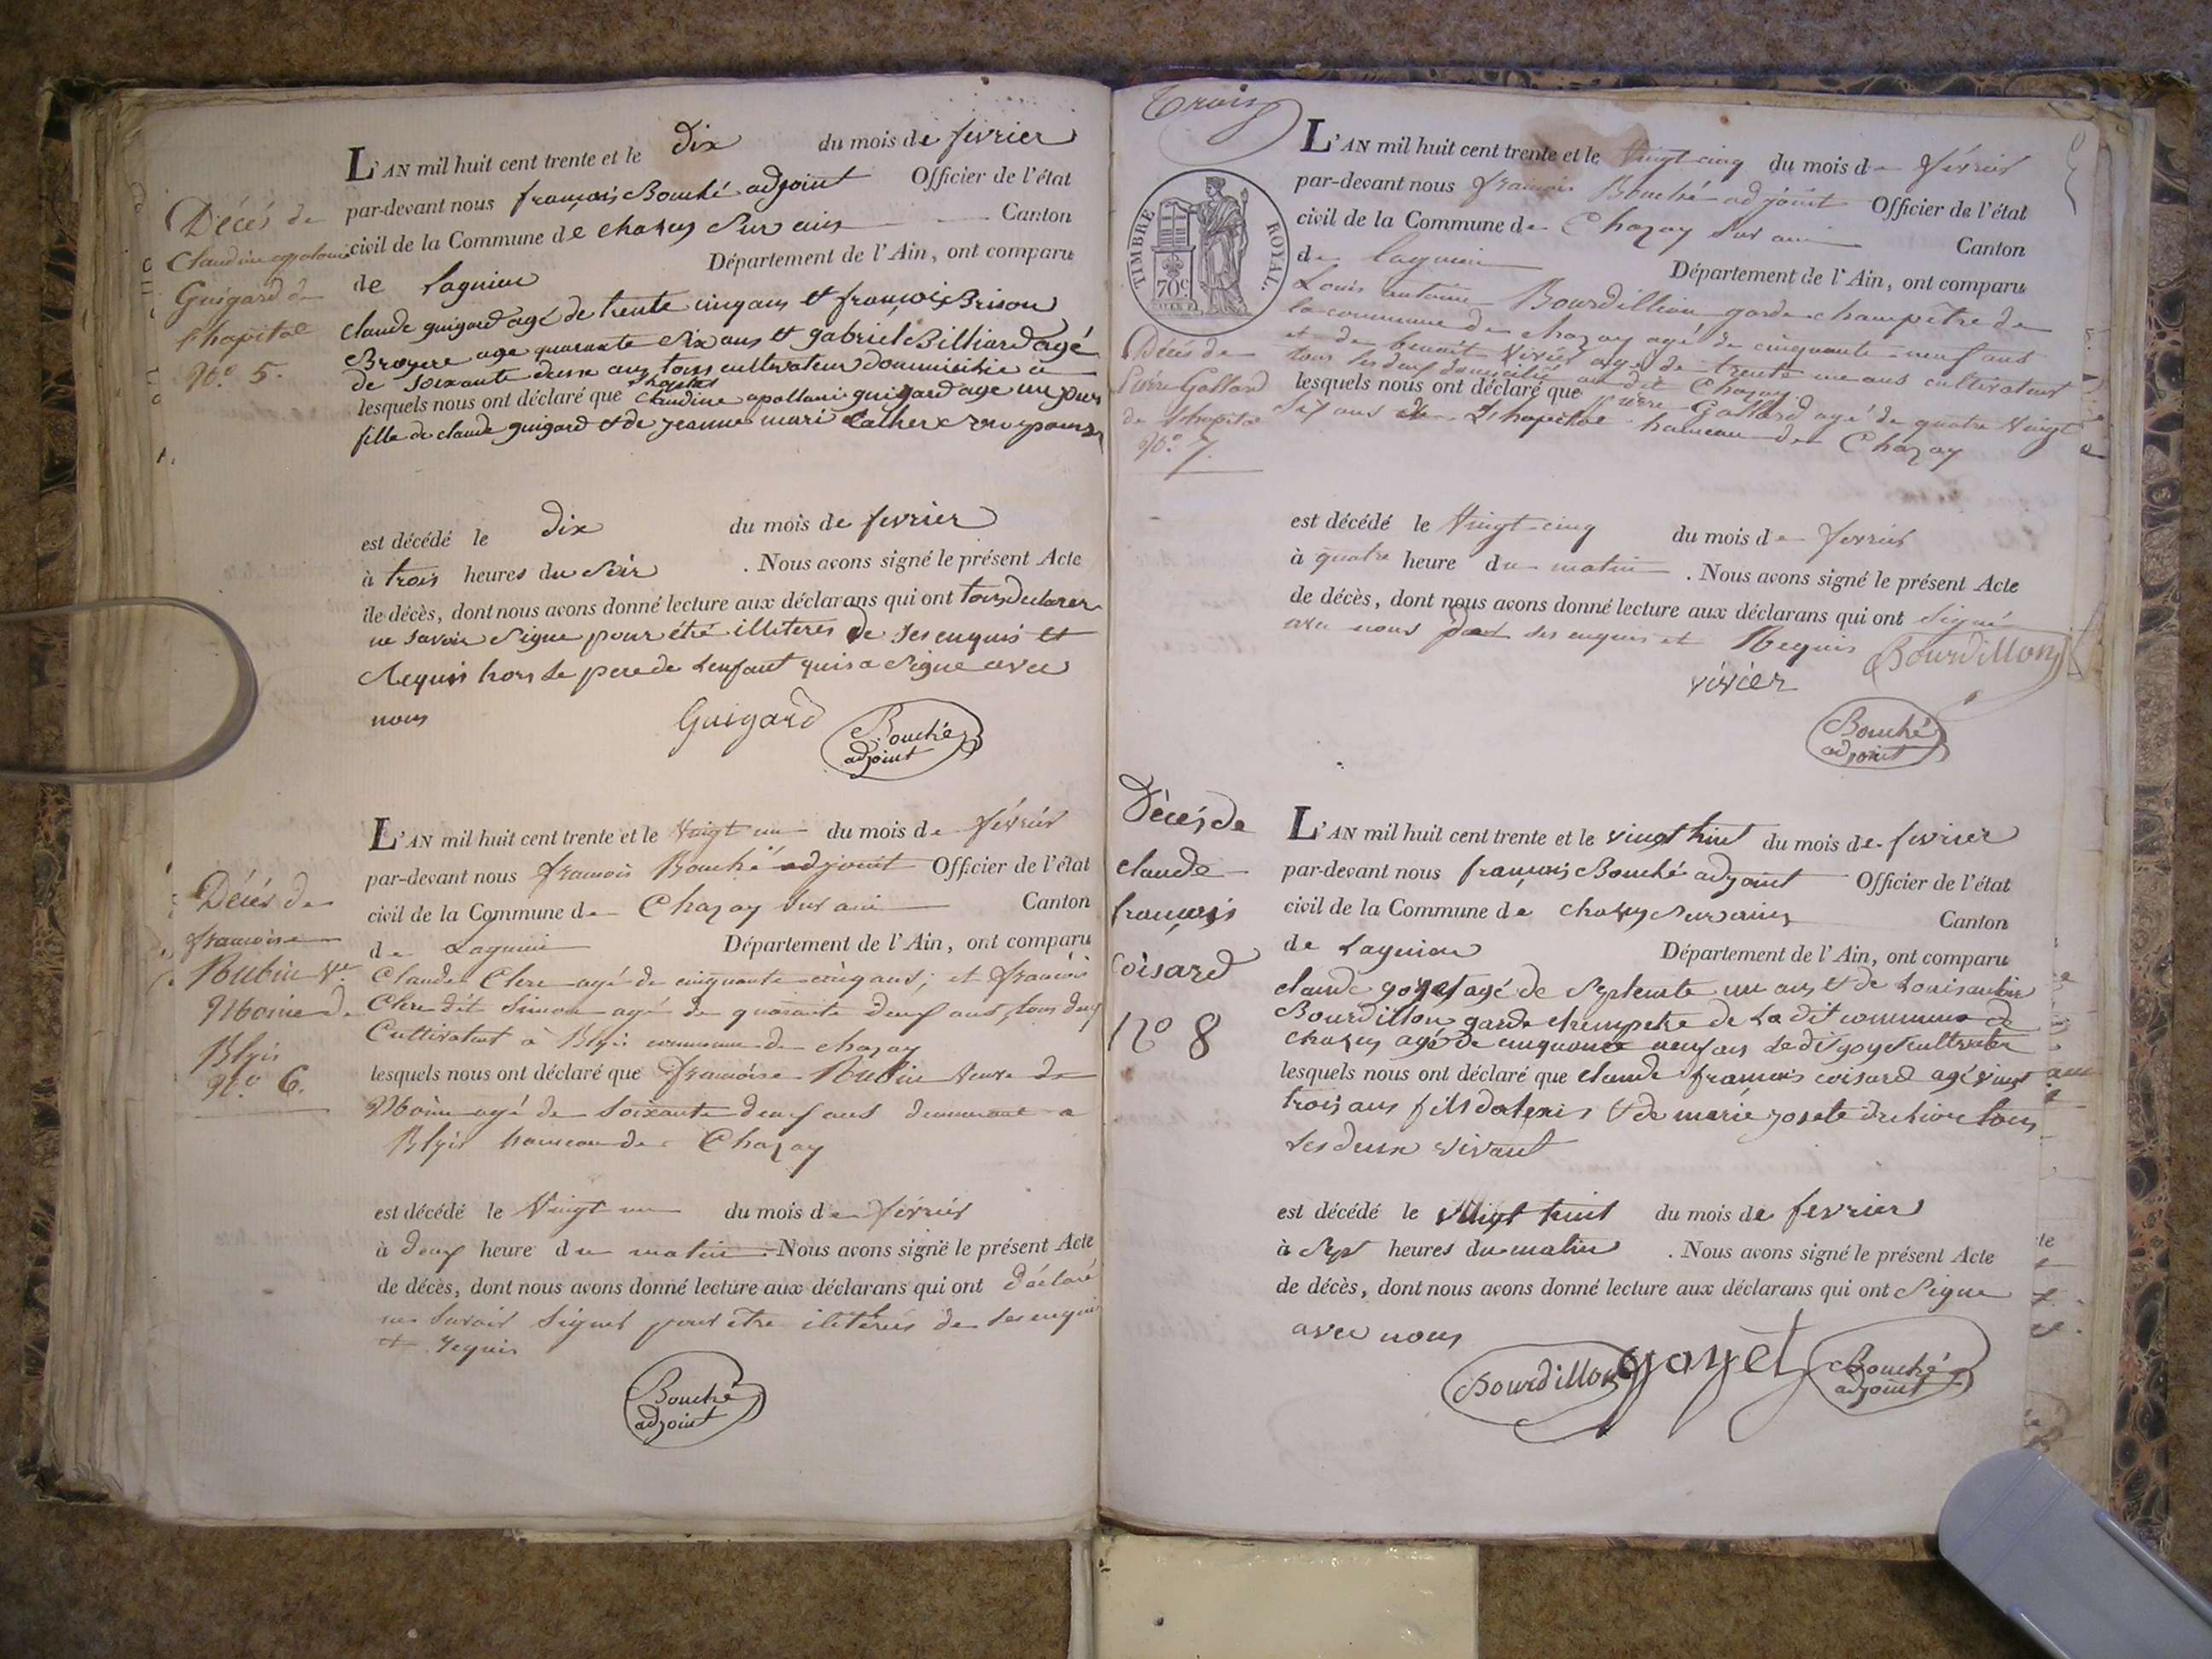 Décés de
Claudine apolonie
Guigard de
l'hopital
N.o 5.
L'AN mil huit cent trente et le dix du mois de fevrier
par-devant nous françois Bouché adjoint Officier de l'état
civil de la Commune de chazey Sur ain Canton
de Lagnieu Département de l'Ain, ont comparu
claude guigard agé de trente cinq ans et françois Brison
Broyere age quarante Six ans et gabriel Billiard agé
de soixante deux ans tous cultivateur domicilié a
l'hopital
lesquels nous ont déclaré que Claudine apollonie guigard age un jour
fille de claude guigard et de jeanne marie
est décédé le dix du mois de fevrier
à trois heures du Soir . Nous avons signé le présent Acte
de décès, dont nous avons donné lecture aux déclarans qui ont tous declarer
ne savoir Signe pour été illiteres de ses enquis et
Requis hors le pere de Lenfant qui a Signe avec
nous
Guigard Bouché
adjoint
Décés de
francoise
Rubin Ve
Moine de
Blyes
N.o 6.
L'AN mil huit cent trente et le Vingt un du mois de févriér
par-devant nous francois Bouché adjoint Officier de l'état
civil de la Commune de Chazay Sur ain Canton
de Lagnieu Département de l'Ain, ont comparu
Claude Clere agé de cinquante cinq ans; et francois
Clere dit Simon agé de quarante deux ans, tous deux
Cultivateur à Blyes commune de chazay
lesquels nous ont déclaré que francoise Rubin Veuve de
Moine agé de Soixante deux ans demeurant a
Blyes hameau de Chazay
est décédé le Vingt un du mois de févriér
à deux heure du matin . Nous avons signé le présent Acte
de décès, dont nous avons donné lecture aux déclarans qui ont déclaré
ne Savoir Signer pour être ilitérés de ses enquis
et requis
Bouché
adjoint
Trois
TIMBRE ROYAL.
70c
Décés de
Pierre Gallard
de l'hopital
N.o 7.
L'AN mil huit cent trente et le Vingt cinq du mois de févriér
par-devant nous francois Bouché adjoint Officier de l'état
civil de la Commune de Chazay Sur ain Canton
de Lagnieu Département de l'Ain, ont comparu
Louis antoine Bourdillion garde champêtre de
la commune de chazay agé de cinquante neuf ans
et de benoit Vivier agé de trente une ans cultivateur
tous les deux domicilié au dit Chazay
lesquels nous ont déclaré que pierre Gallard agé de quatre Vingt
Six ans de L'hopital hameau de Chazay
est décédé le Vingt cinq du mois de fevriér
à quatre heure du matin . Nous avons signé le présent Acte
de décès, dont nous avons donné lecture aux déclarans qui ont Signé
avec nous de ses enquis et Requis Bourdillon
vivier
Bouché
adjoint
Décés de
claude
françois
Coisard
No 8
L'AN mil huit cent trente et le vingt huit du mois de fevrier
par-devant nous françois Bouché adjoint Officier de l'état
civil de la Commune de chazey Sur ain Canton
de Lagnieu Département de l'Ain, ont comparu
claude goyet agé de Septente un ans et de Louis antoine
Bourdillon garde champetre de La dit commune de
chazey agé de cinquante neuf ans le dit goyet cultivateur
lesquels nous ont déclaré que claude francois coisard agé vingt
trois ans fils d'alexis et de marie josete tous
Les deux vivant
est décédé le vingt huit du mois de fevrier
à Sept heures du matin . Nous avons signé le présent Acte
de décès, dont nous avons donné lecture aux déclarans qui ont Signe
avec nous
Bourdillon goyet Bouché
adjoint